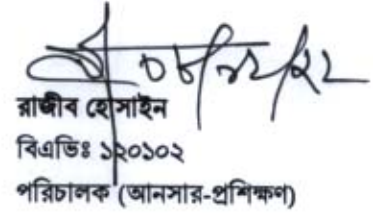 ০৮/১২/২২
রাজীব হোসাইন
বিএভিঃ ১২০১০২
পরিচালক (আনসার-প্রশিক্ষণ)